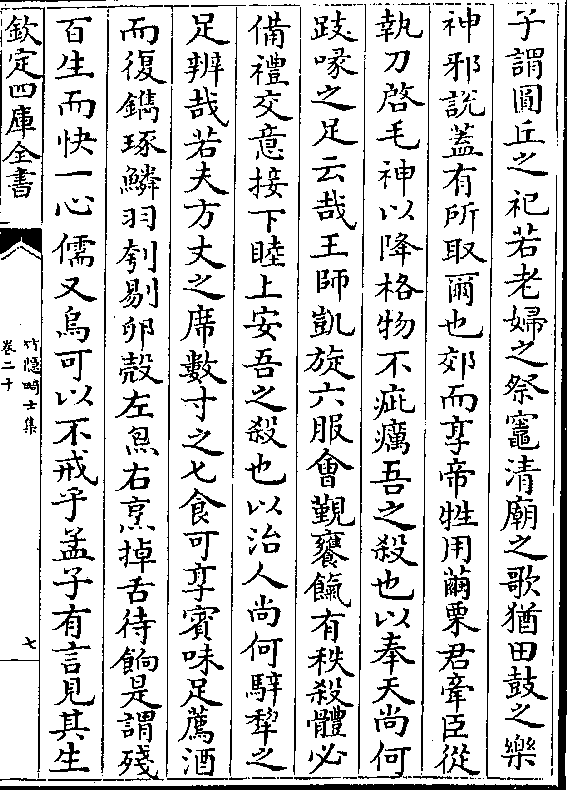 子謂圓丘之祀若老婦之祭竈清廟之歌猶田鼓之樂
神邪說蓋有所取爾也郊而享帝牲用繭栗君牽臣從
執刀啓毛神以降格物不疵癘吾之殺也以奉天尚何
跂喙之足云哉王師凱旋六服會覲饔餼有秩殺體必
備禮交意接下睦上安吾之殺也以治人尚何騂犂之
足辨哉若夫方丈之席數寸之匕食可享賓味足薦酒
而復鐫琢鱗羽刳剔卵殼左炰右烹掉舌待餉是謂殘
百生而快一心儒又烏可以不戒乎孟子有言見其生
欽定四庫全書
竹隱畸士集
卷二十
七